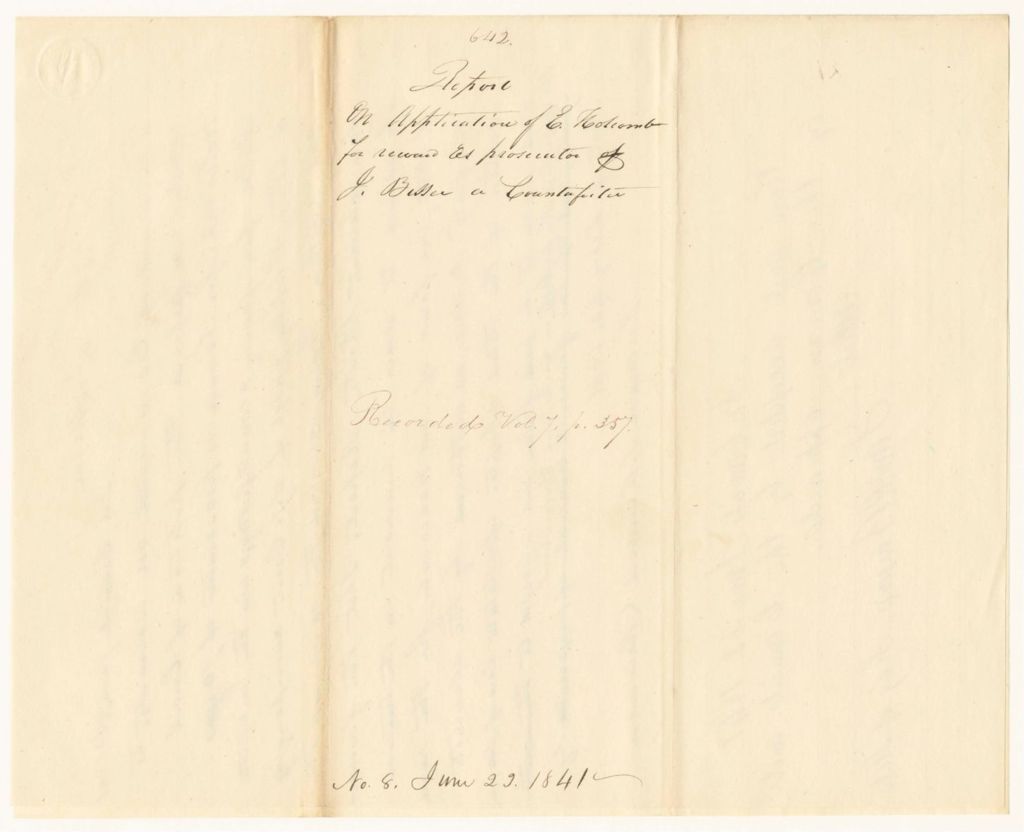 642.
Report
On Application of E. Holcomb
for reward as prosecutor of
J. Besse a Counterfeiter
Recorded Vol. 7. p. 357.
No. 8. June 29. 1841